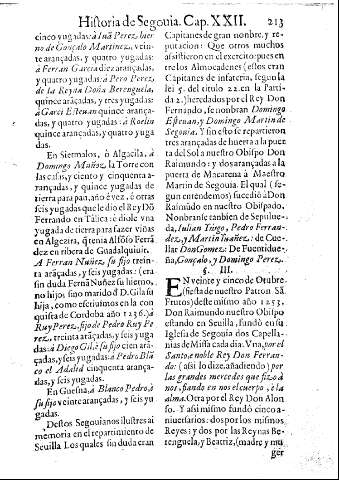 Historia de Segouia. Cap. XXII. 213
cinco yugadas: à Iuā Perez, hier-
no de Gonçalo Martinez, vein-
te arançadas, y quatro yugadas:
à Ferran Garcia diez arançadas,
y quatro yugadas: à Pero Perez
de la Reyna Doña Berenguela,
quince arançadas, y tres yugadas:
à Garci Estevan quince arança-
das, y quatro yugadas: à Roelin
quince arançadas, y quatro yuga
das.
En Sietmalos, ò Algacila, à
Domingo Muñoz, la Torre con
las casas, y ciento y cinquenta a-
rançadas, y quince yugadas de
tierra para pan, año è vez, ò otras
seis yugadas que le dio el Rey Dō
Ferrando en Talica: è diole vna
yugada de tierra para fazer viñas
en Algezira, q̃ tenia Alfonso Ferrā
dez en ribera de Guadalquiuir.
A Ferran Nuñez, su fijo trein-
ta arāçadas, y seis yugadas: (era
sin duda Fernā Nuñez su hierno,
no hijo, sino marido de D. Gila su
hija, como escriuimos en la con
quista de Cordoba año 1236.) à
Ruy Perez, fijo de Pedro Ruy Pe
rez, treinta arāçadas, y seis yuga
das: à Diego Gil, è su fijo cien arā-
çadas, y seis yugadas: à Pedro Blā
co el Adalid cinquenta arança-
das, y seis yugadas.
En Guesna, à Blanco Pedro, à
su fijo veinte arançadas, y seis yu
gadas.
Destos Segouianos ilustres ai
memoria en el repartimiento de
Seuilla. Los quales sin duda eran
Capitanes de gran nombre, y re-
putacion: Que otros muchos
assistieron en el exercito: pues en-
tre los Almocadenes (estos eran
Capitanes de infateria, segun la
ley 5. del titulo 22. en la Parti-
da 2.) heredados por el Rey Don
Fernando, se nombran Domingo
Estevan, y Domingo Martin de
Segouia. Y sin esto se repartieron
tres arançadas de huerta a la puer
ta del Sol a nuestro Obispo Don
Raimundo: y dos arançadas a la
puerta de Macarena à Maestre
Martin de Segouia. El qual (se
gun entendemos) sucedió à Don
Raimundo en nuestro Obispado.
Nonbranse tambien de Sepulue-
da, Iulian Iñigo, Pedro Fernan-
dez, y Martin Iuañez: de Cue-
llar Don Gomez: De Fuentidue-
ña, Gonçalo, y Domingo Perez.
§. III.
EN veinte y cinco de Otubre.
(fiesta de nuestro Patron Sā
Frutos) deste mismo año 1253,
Don Raimundo nuestro Obispo
estando en Seuilla, fundó en su
Iglesia de Segouia dos Capella-
nias de Missa cada dia. Vna, por el
Santo, e noble Rey Don Ferran-
do: (assi lo dize, añadiendo) por
las grandes mercedes que fizo à
nos, fiando en nos el cuerpo, è la
alma. Otra por el Rey Don Alon-
so. Y assi mismo fundó cinco a-
niuersarios: dos por los mismos
Reyes: y dos por las Reynas Be-
renguela, y Beatriz, (madre y mu
ger